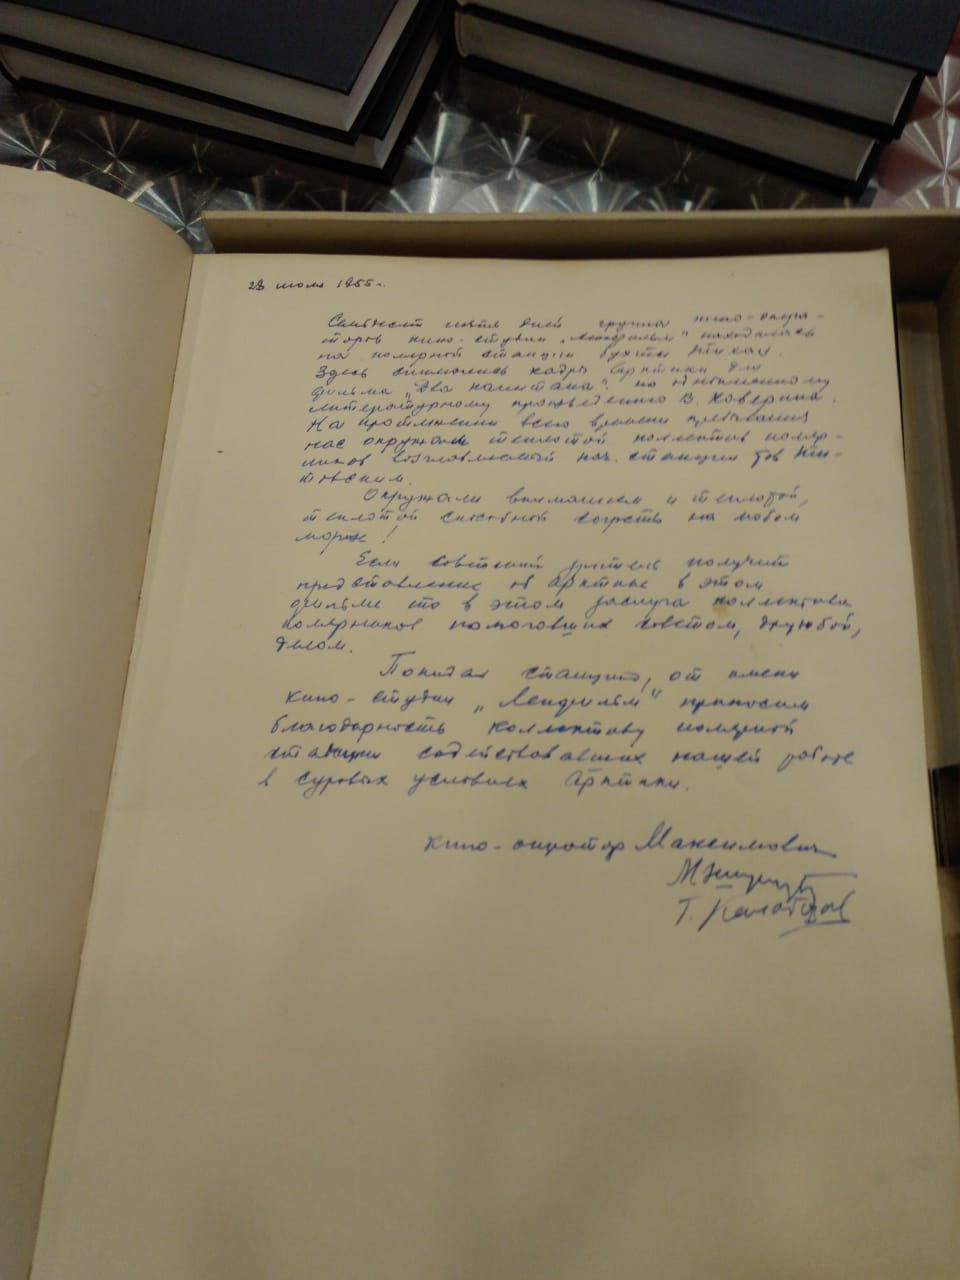 28 июля 1955 г.
Семьдесят пять дней группа кино-опера-
торов кино-студии „Ленфильм" находилась
на полярной станции бухты Тихая.
Здесь снимались кадры Арктики для
фильма „Два капитана" по одноименному
литературному произведению В. Каверина.
На протяжении всего времени пребывания
нас окружал теплотой коллектив поляр-
ников возглавляемый нач. станции тов
Окружали вниманием и теплотой,
теплотой способной согреть на любом
морозе!
Если советский зритель получит
представление об Арктике в этом
фильме то в этом заслуга коллектива
полярников помогавших советом, дружбой,
делом.
Покидая станцию, от имени
кино-студии „Ленфильм" приносим
благодарность коллективу полярной
станции содействовавших нашей работе
в суровых условиях Арктики.
кино-оператор Максимович
Т.